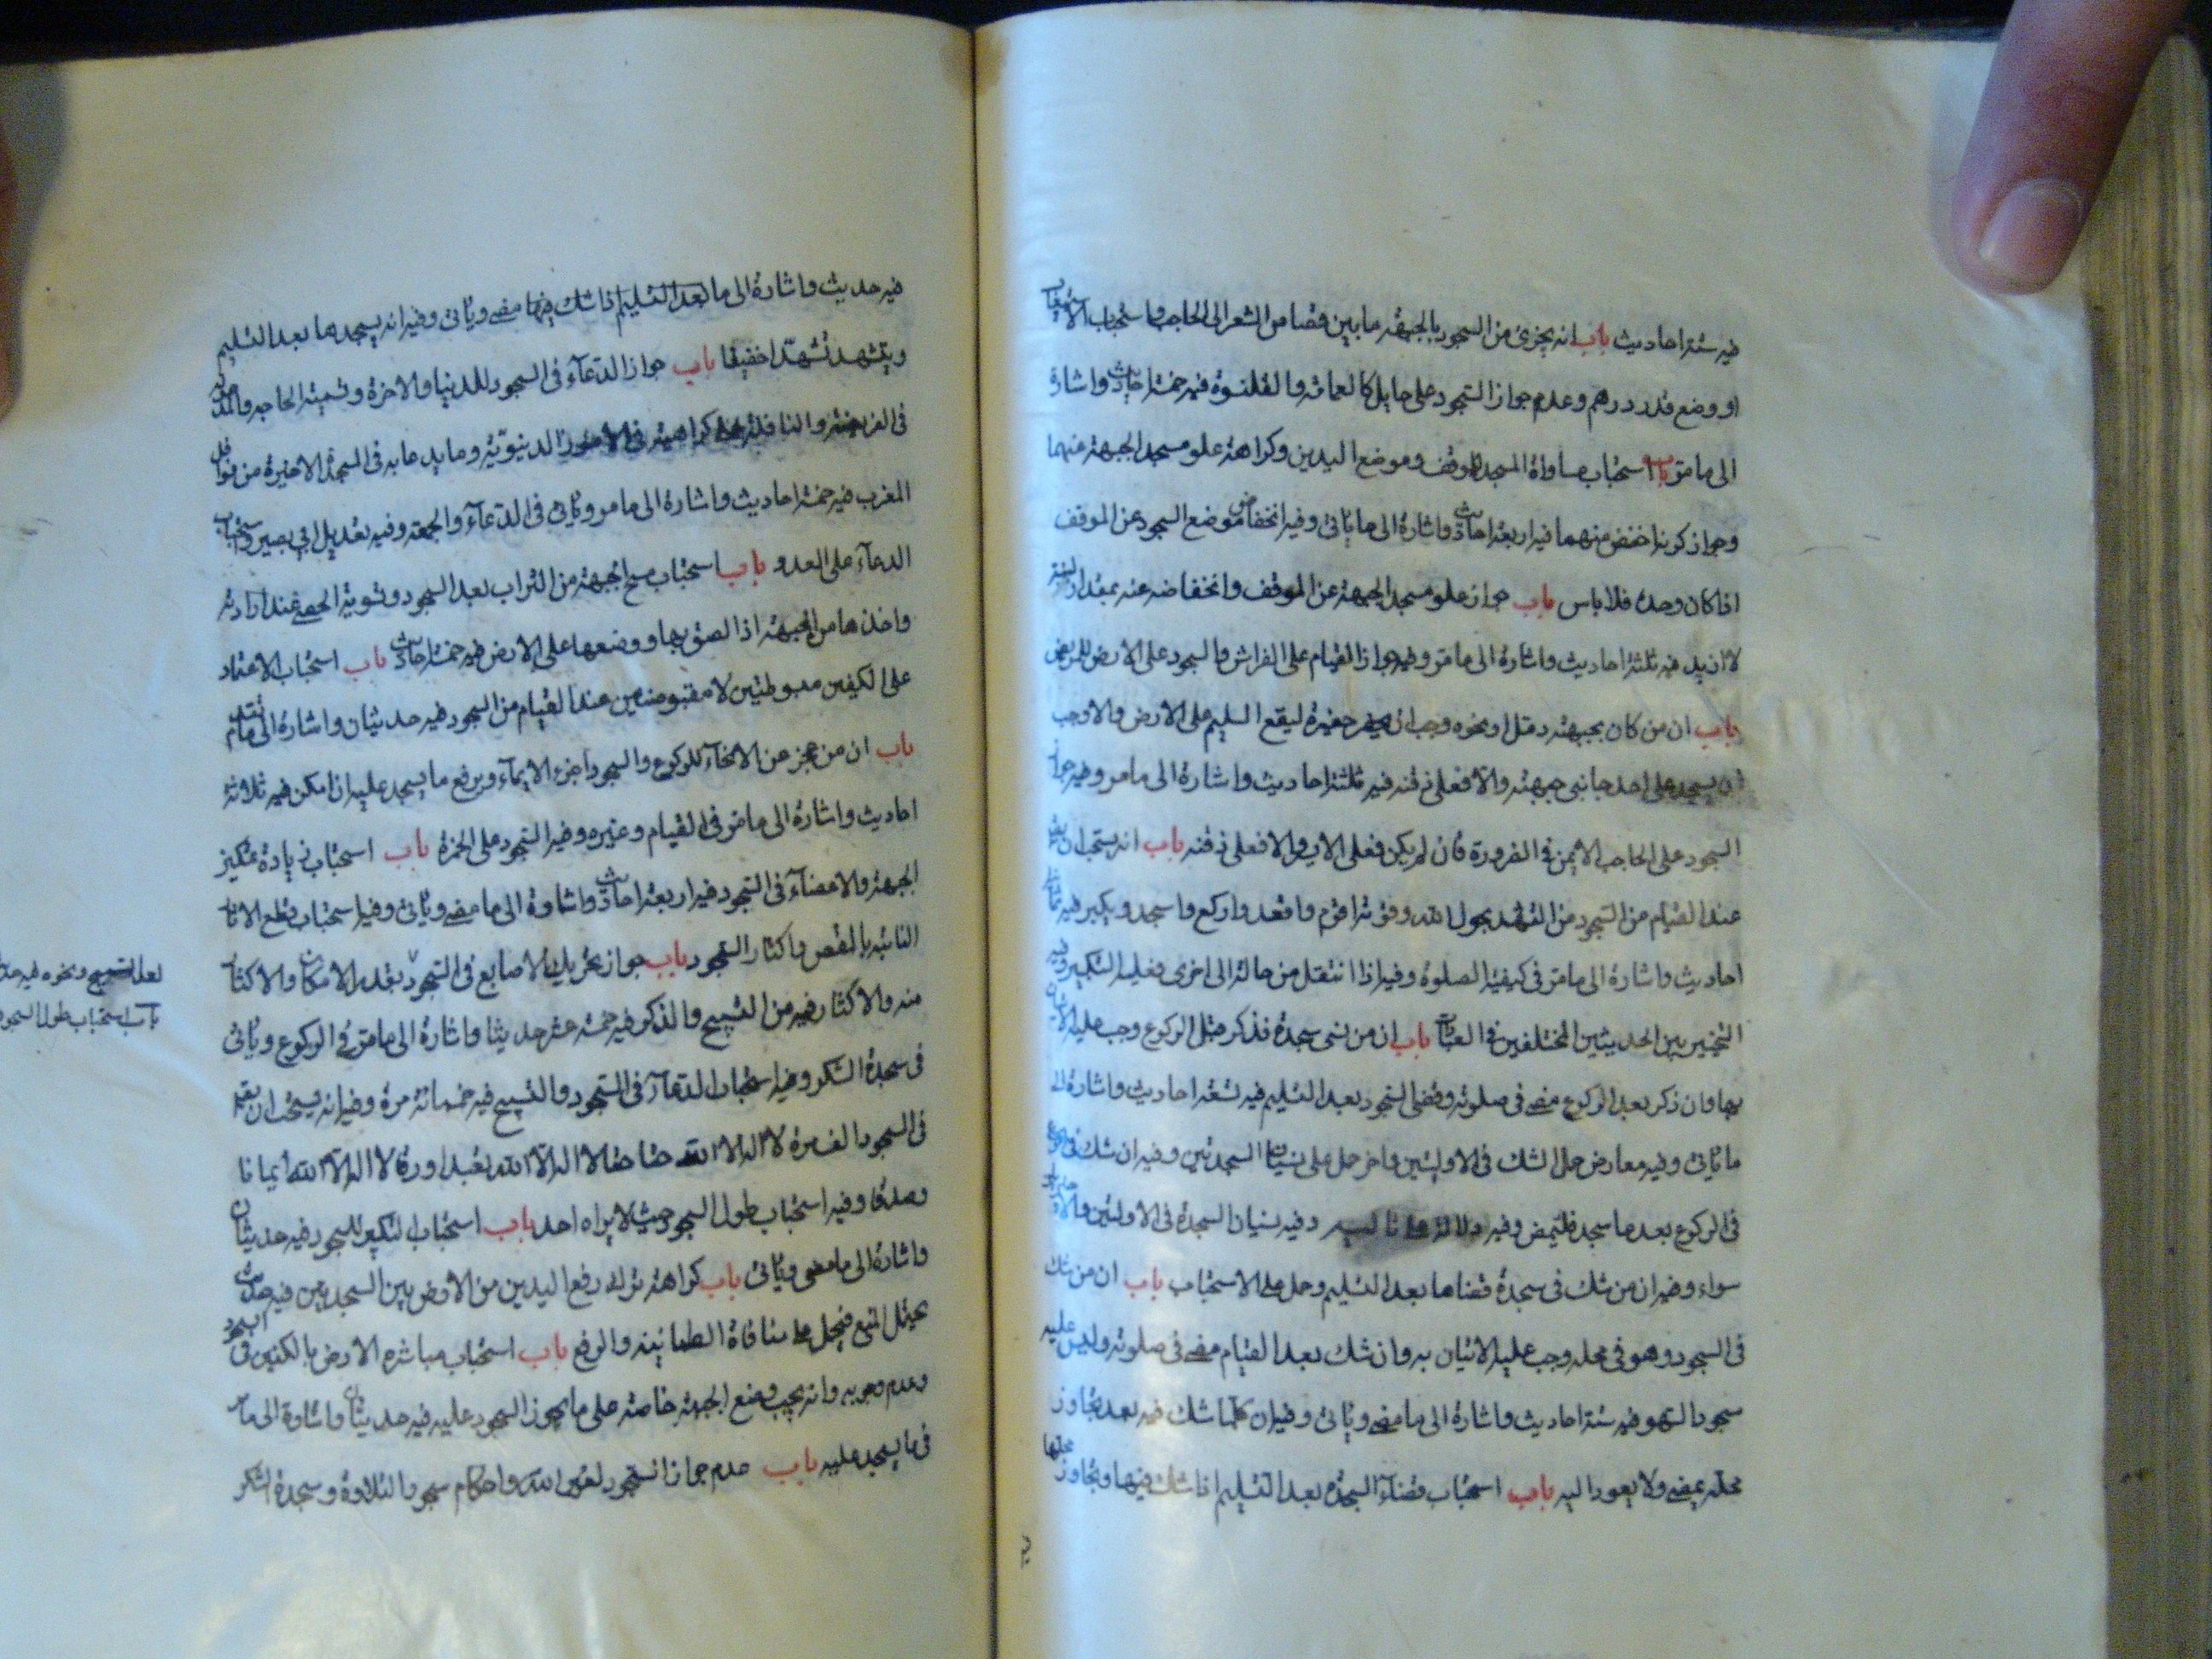 فيه ستة احاديث باب انه يجزى من السجود بالجبهة ما بين قصاص الشعر الى الحاجب واستحباب الاستيعاب
او وضع قدر درهم وعدم جواز السجود على حايل كالعمامة والقلنسوة فيه خمسة احاديث واشارة
الى ما مر باب استحباب مساواة المسجد للموقف وموضع اليدين وكراهة علو مسجد الجبهة عنهما
وجواز كونه اخفض منهما فيه اربعة احاديث واشارة الى ما ياتى وفيه انخفاض موضع السجود عن الموقف
اذا كان وحده فلا باس باب جواز علو مسجد الجبهة عن الموقف وانخفاضه عنه بمقدار لبنة
لا ازيد فيه ثلثة احاديث واشارة الى ما مر وفيه جواز القيام على الفراش والسجود على الارض للمريض
باب ان من كان بجبهته دمل او نحوه وجب ان يحفر حفيرة ليقع السليم على الارض والا وجب
ان يسجد على احد جانبى جبهته والا فعلى ذقنه فيه ثلثة احاديث واشارة الى ما مر وفيه جواز
السجود على الحاجب الايمن فى الضرورة فان لم يكن فعلى الايسر والا فعلى ذقنه باب انه يستحب ان يقول
عند القيام من السجود من التشهد بحول الله وقوته اقوم واقعد واركع واسجد ويكبر فيه ثمانية
احاديث واشارة الى ما مر فى كيفية الصلوة وفيه اذا انتقل من حالة الى اخرى فعليه التكبير وفيه
التخيير بين الحديثين المختلفين فى العبادات باب ان من نسى سجدة فذكر قبل الركوع وجب عليه الاتيان
بها وان ذكر بعد الركوع مضى فى صلوته وقضى السجود بعد التسليم فيه تسعة احاديث واشارة الى
ما ياتى وفيه معارض حمل الشك فى الاوليين واخر حمل على نسيان السجدتين وفيه ان شك فى
فى الركوع بعد ما سجد فليمض وفيه وفيه نسيان السجدة فى الاولتين والاخيرتين
سواء وفيه ان من شك فى سجدة قضاها بعد التسليم وحمل على الاستحباب باب ان من شك
فى السجود وهو فى محله وجب عليه الاتيان به وان شك بعد القيام مضى فى صلوته وليس عليه
سجود السهو فيه ستة احاديث واشارة الى ما مضى وياتى وفيه ان كلما شك فيه بعد تجاوز
محله يمضى ولا يعود اليه باب استحباب قضاء السجدة بعد التسليم اذا شك فيها وتجاوز محلها
فيه حديث واشارة الى ما بعد التسليم اذا شك فيها مضى وياتى وفيه انه يسجدها بعد التسليم
ويتشهد تشهدا خفيفا باب جواز الدعاء فى السجود للدنيا والاخرة وتسمية الحاجة والمدعو له
فى الفريضة والنافلة على كراهية فى الامور الدنيوية وما يدعا به فى السجدة الاخيرة من نوافل
المغرب فيه خمسة احاديث واشارة الى ما مر وياتى فى الدعاء والجمعة وفيه تعديل ابى بصير واستحباب
الدعاء على العدو باب استحباب مسح الجبهة من التراب بعد السجود وتسوية الحصى عند ارادته
واخذها من الجبهة اذا لصق بها ووضعها على الارض فيه خمسة احاديث باب استحباب الاعتماد
على الكفين مبسوطتين لا مقبوضتين عند القيام من السجود فيه حديثان واشارة الى ما تقدم
باب ان من عجز عن الانحناء للركوع والسجود اجزء الايماء ويرفع ما يسجد عليه ان امكن فيه ثلاثة
احاديث واشارة الى ما مر فى القيام وغيره وفيه السجود على الخمرة باب استحباب زيادة تمكين
الجبهة والاعضاء فى السجود فيه اربعة احاديث واشارة الى ما مضى وياتى وفيه استحباب قطع الاثار
الناتية بالمقص واكثار السجود باب جواز تحريك الاصابع فى السجود بقدر الامكان والاكثار
منه والاكثار فيه من التسبيح والذكر فيه خمسة عشر حديثا واشارة الى ما مر فى الركوع وياتى
فى سجدة الشكر وفيه استحباب الدعاء فى السجود والتسبيح فيه خمسمائة مرة وفيه انه يستحب ان يقول
فى السجود الف مرة لا اله الا الله حقا حقا لا اله الا الله تعبدا ورقا لا اله الا الله ايمانا
وصدقا وفيه استحباب طول السجود حيث لا يراه احد باب استحباب التكبير للسجود فيه حديثان
واشارة الى ما مضى وياتى باب كراهة ترك رفع اليدين من الارض بين السجدتين فيه حديث
يحتمل المنع فيحمل على منافاة الطمانينة والرفع باب استحباب مباشرة الارض بالكفين فى السجود
وعدم وجوبه وانه يجب وضع الجبهة خاصة على ما يجوز السجود عليه فيه حديثان واشارة الى ما مر
فى ما يسجد عليه باب عدم جواز السجود لغير الله واحكام سجود التلاوة وسجدة الشكر
ونحوه فيه
باب استحباب طول السجود